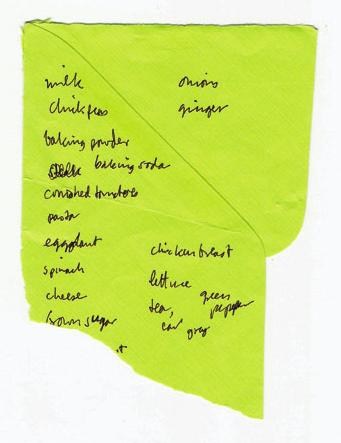 milk
chickpeas
baking powder
baking soda
crushed tomatoes
pasta
eggplant
spinach
cheese
brown sugar
onions
ginger
chicken breast
lettuce
tea, earl grey
green pepper